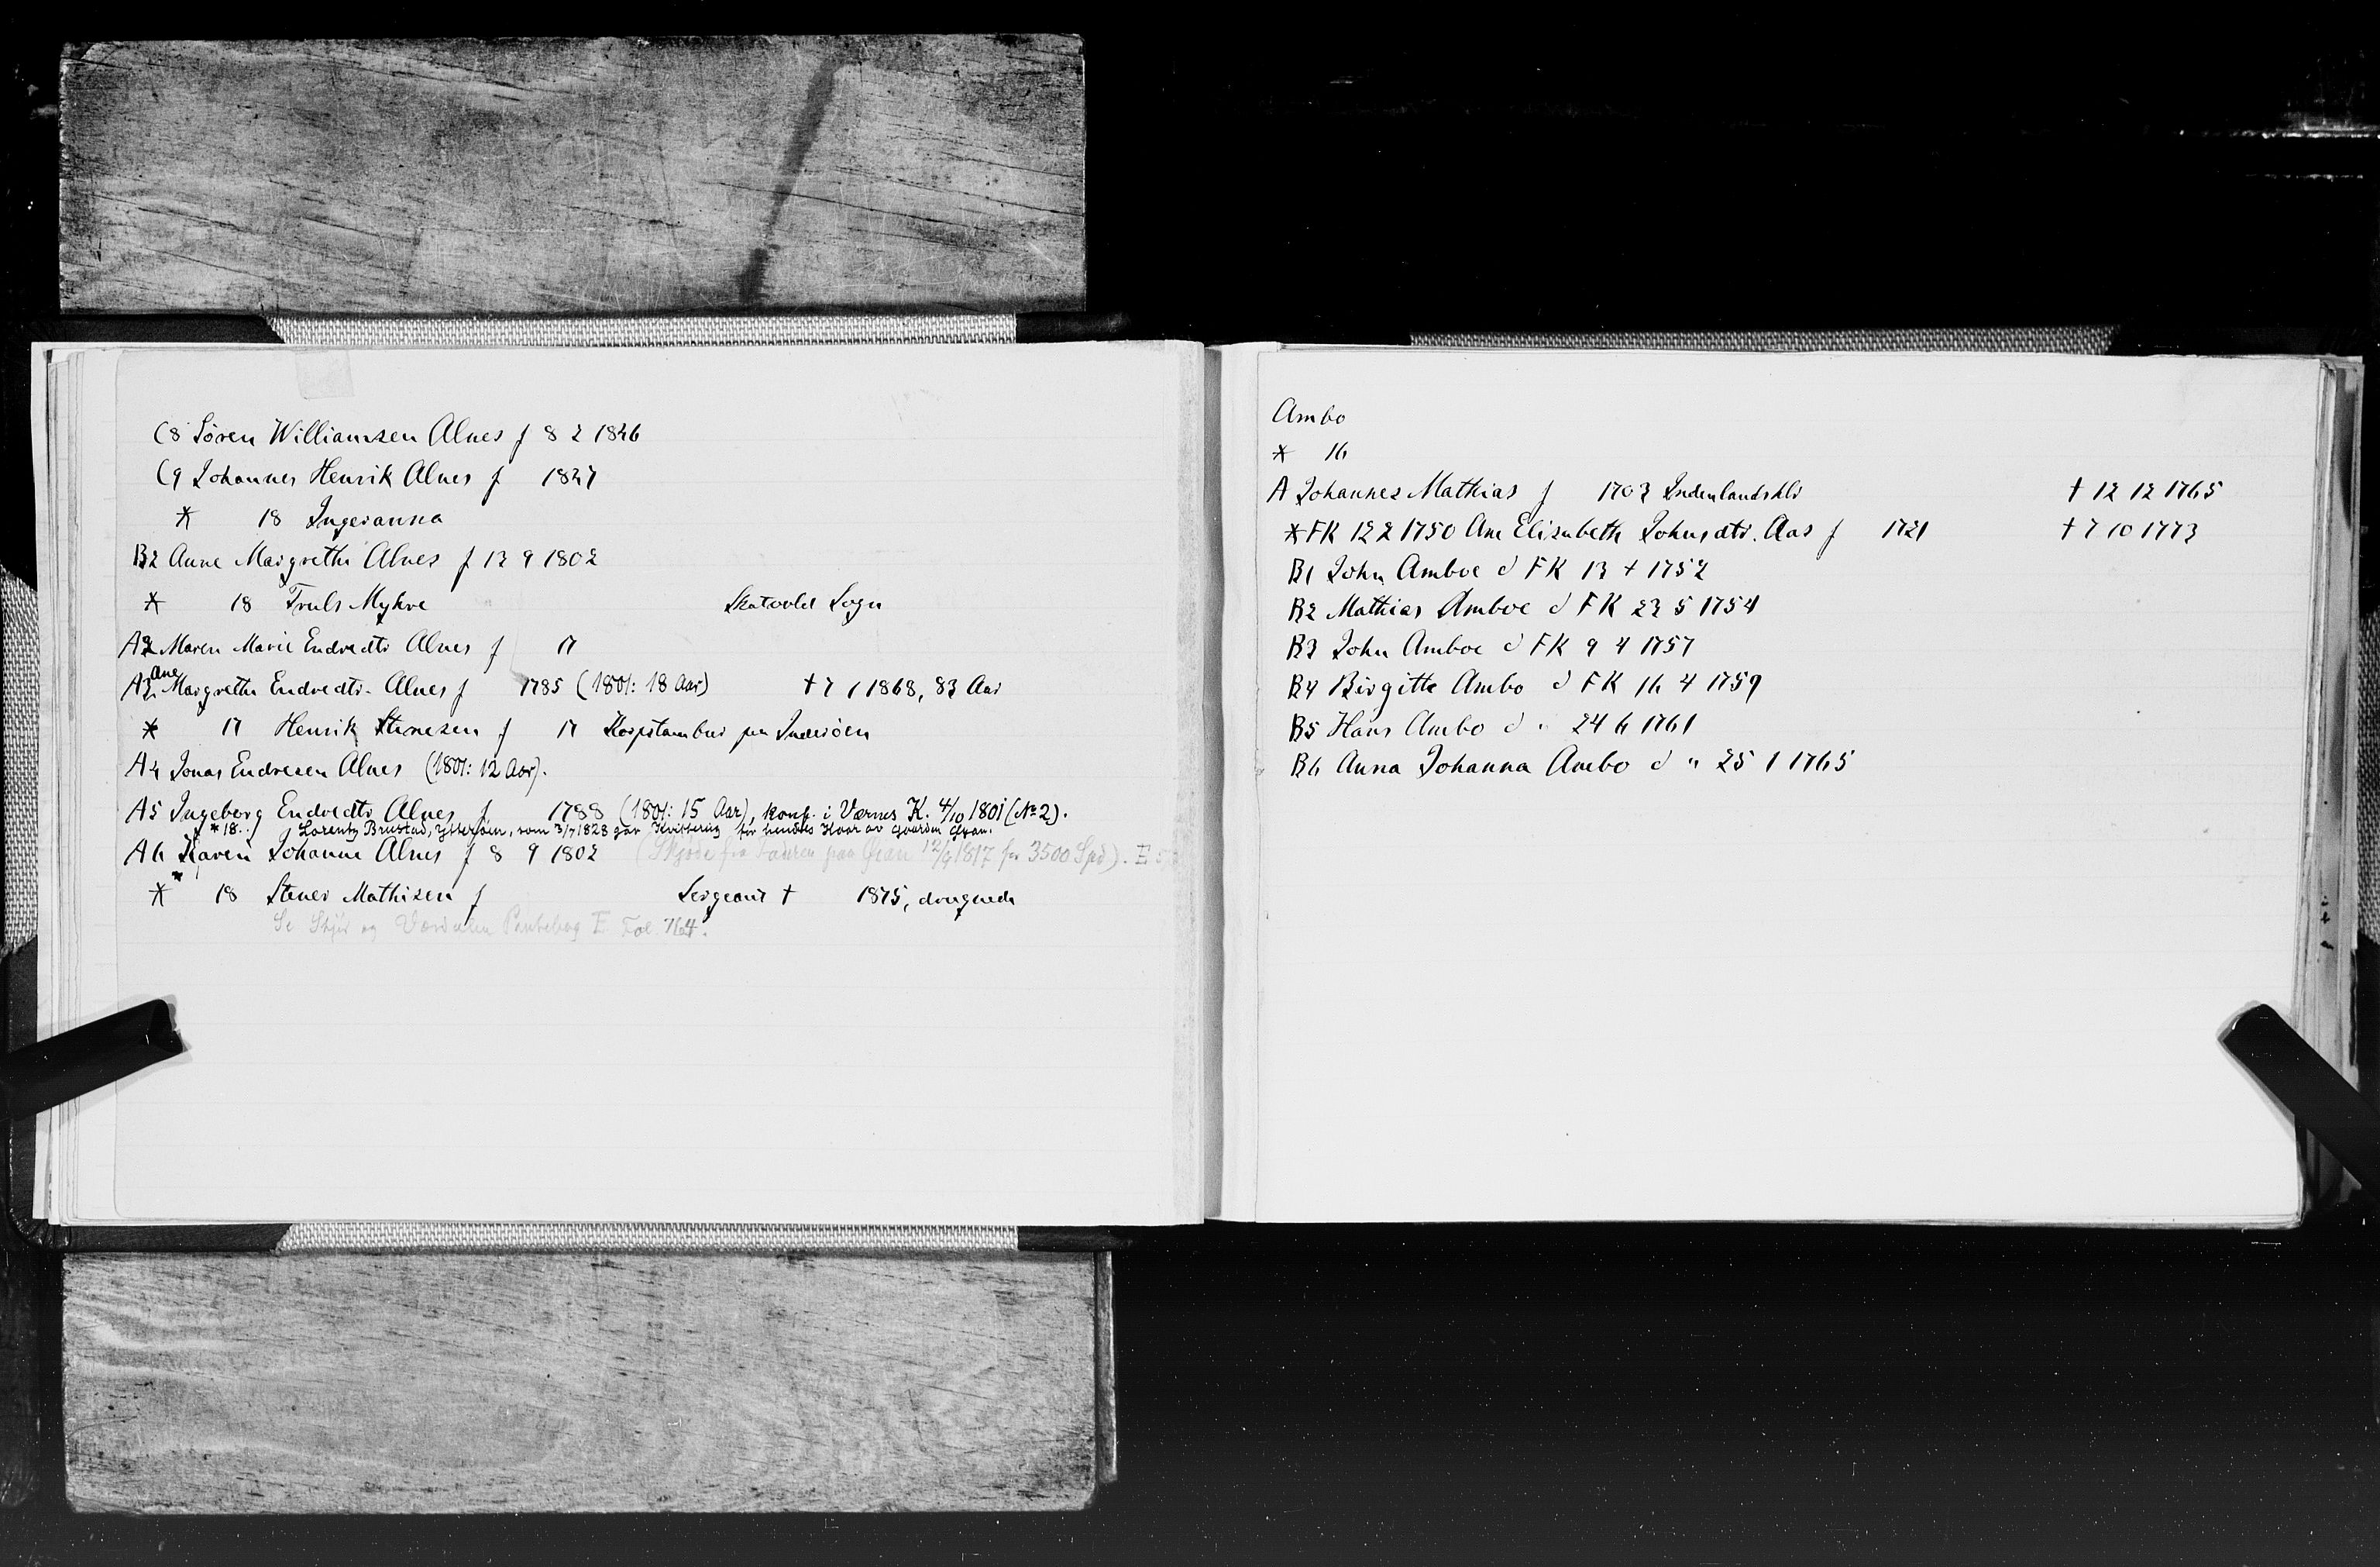 C8 Sören Williamsen Alnes f 8 2 1826
C9 Johannes Henrik Alnes f 1827
* 18 Ingeranna
B2 Anne Margrethe Alnes f 13 9 1802
* 18 Truls Myhre Skatvold Sogn
A2 Maren Marie Endredtr Alnes f 17
Ane
A3 Margrethe Endredtr. Alnes f 1785 (1801: 18 Aar) † 7 1 1868, 83 Aar
* 17 Henrik Stenesen f 17 paa Inderöen
A4 Jonas Endresen Alnes (1801: 12 Aar).
A5 Ingeborg Endredtr Alnes f. 1788 (1801: 15 Aar), konf. i Værnes K. 4/10 1801 (№ 2).
* 18.. Lorentz Brustad, Ytteröen, som 3/7 1828 gav Kvittering for hendes Kaar av Gaarden Gran.
A6 Karen Johanne Alnes f 8 9 1802 (Skjöde fra Faderen paa Gran 12/9 1817 for 3500 Spd). E
* 18 Stener Mathisen f Sergeant † 1875, druknede
Se Stjör og Værdalen Pantebog E Fol. 764.
Ambo
* 16
A Johannes Mathias f 1703 † 12 12 1765
* FK 12 2 1750 Ane Elisabeth Johnsdtr. Aas f 1721 † 7 10 1773
B1 John Amboe d FK 13 + 1752
B2 Mathias Amboe d FK 23 5 1754
B3 John Amboe d FK 9 4 1757
B4 Birgitte Ambo d FK 16 4 1759
B5 Hans Ambo d " 24 6 1761
B6 Anna Johanna Ambo d " 25 1 1765